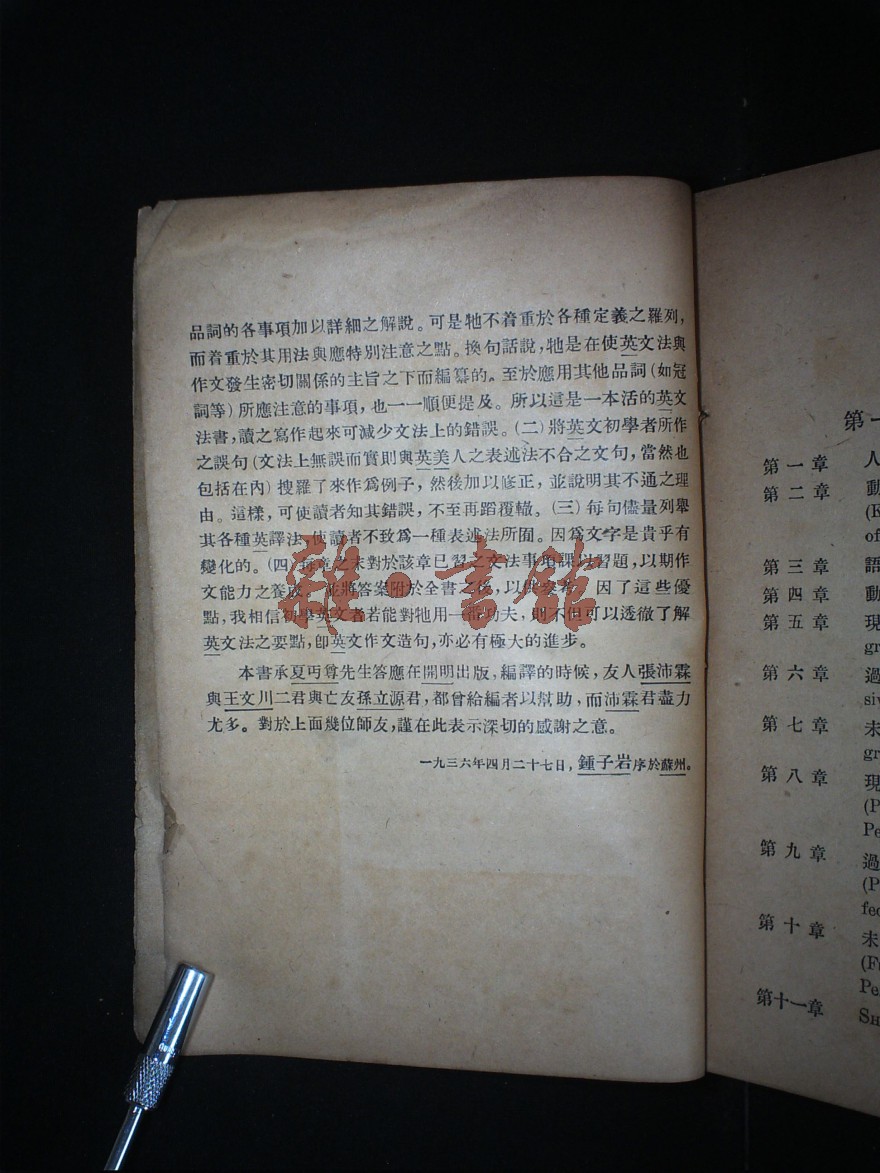 品詞的各事項加以詳細之解說。可是牠不着重於各種定義之羅列,
而着重於其用法與應特別注意之點。換句話說,牠是在使英文法與
作文發生密切關係的主旨之下而編纂的。至於應用其他品詞(如冠
詞等)所應注意的事項,也一一順便提及。所以這是一本活的英文
法書,讀之寫作起來可減少文法上的錯誤。(二)將英文初學者所作
之誤句(文法上無誤而實則與英美人之表述法不合之文句,當然也
包括在內)搜羅了來作爲例子,然後加以修正,並說明其不通之理
由。這樣,可使讀者知其錯誤,不至再蹈覆轍。(三)每句儘量列舉
其各種英譯法,使讀者不致爲一種表述法所囿。因爲文字是貴乎有
變化的。(四)每章之末對於該章已習之文法事項課以習題,以期作
文能力之養成,並將答案附於全書之後,以供參考。因了這些優
點,我相信初學英文者若能對牠用一番功夫,則不但可以透徹了解
英文法之要點,卽英文作文造句,亦必有極大的進步。
本書承夏丏尊先生答應在開明出版,編譯的時候,友人張沛霖
與王文川二君與亡友孫立源君,都曾給編者以幫助,而沛霖君盡力
尤多。對於上面幾位師友,謹在此表示深切的感謝之意。
一九三六年四月二十七日,鍾子岩序於蘇州。
雜·書館
第一
第一章 人
第二章 動
(K
of
第三章 語
第四章 動
第五章 現
gr
第六章 過
siv
第七章 未
gr
第八章 現
(P
Pe
第九章 過
(P
fec
第十章 未
(F
Pe
第十一章 SH